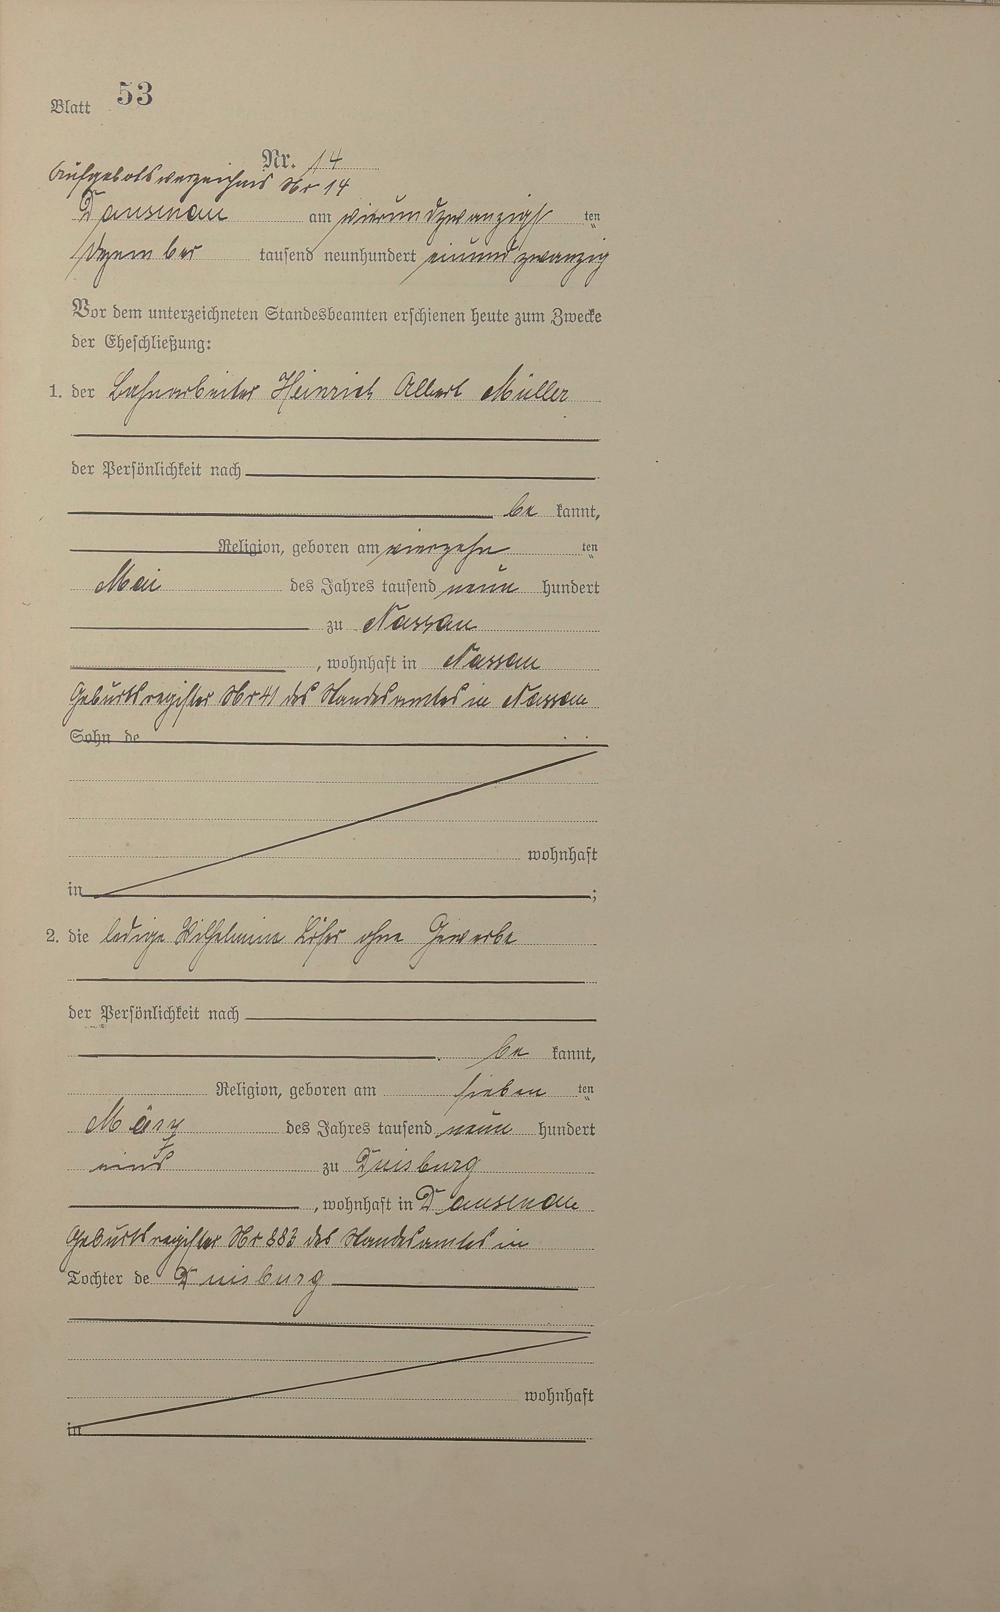 Blatt 53
Nr. 14
Aufgebotsverzeichnis Nr 14
Dausenau am vierundzwanzigsten
Dezember tausend neunhundert einundzwanzig
Vor dem unterzeichneten Standesbeamten erschienen heute zum Zwecke
der Eheschließung:
1. der Bahnarbeiter Heinrich Albert Müller
der Persönlichkeit nach
be kannt,
Religion, geboren am vierzehn ten
Mai des Jahres tausend neun hundert
zu Nassau
, wohnhaft in Nassau
Geburtsregister Nr 41 des Standesamtes in Nassau
Sohn de
wohnhaft
in ;
2. die ledige Wilhelmine ohne Gewerbe
der Persönlichkeit nach
be kannt,
Religion, geboren am sieben ten
März des Jahres tausend neun hundert
eins zu Duisburg
, wohnhaft in Dausenau
Geburtsregister Nr 883 des Standesamtes in
Tochter de Duisburg
wohnhaft
in